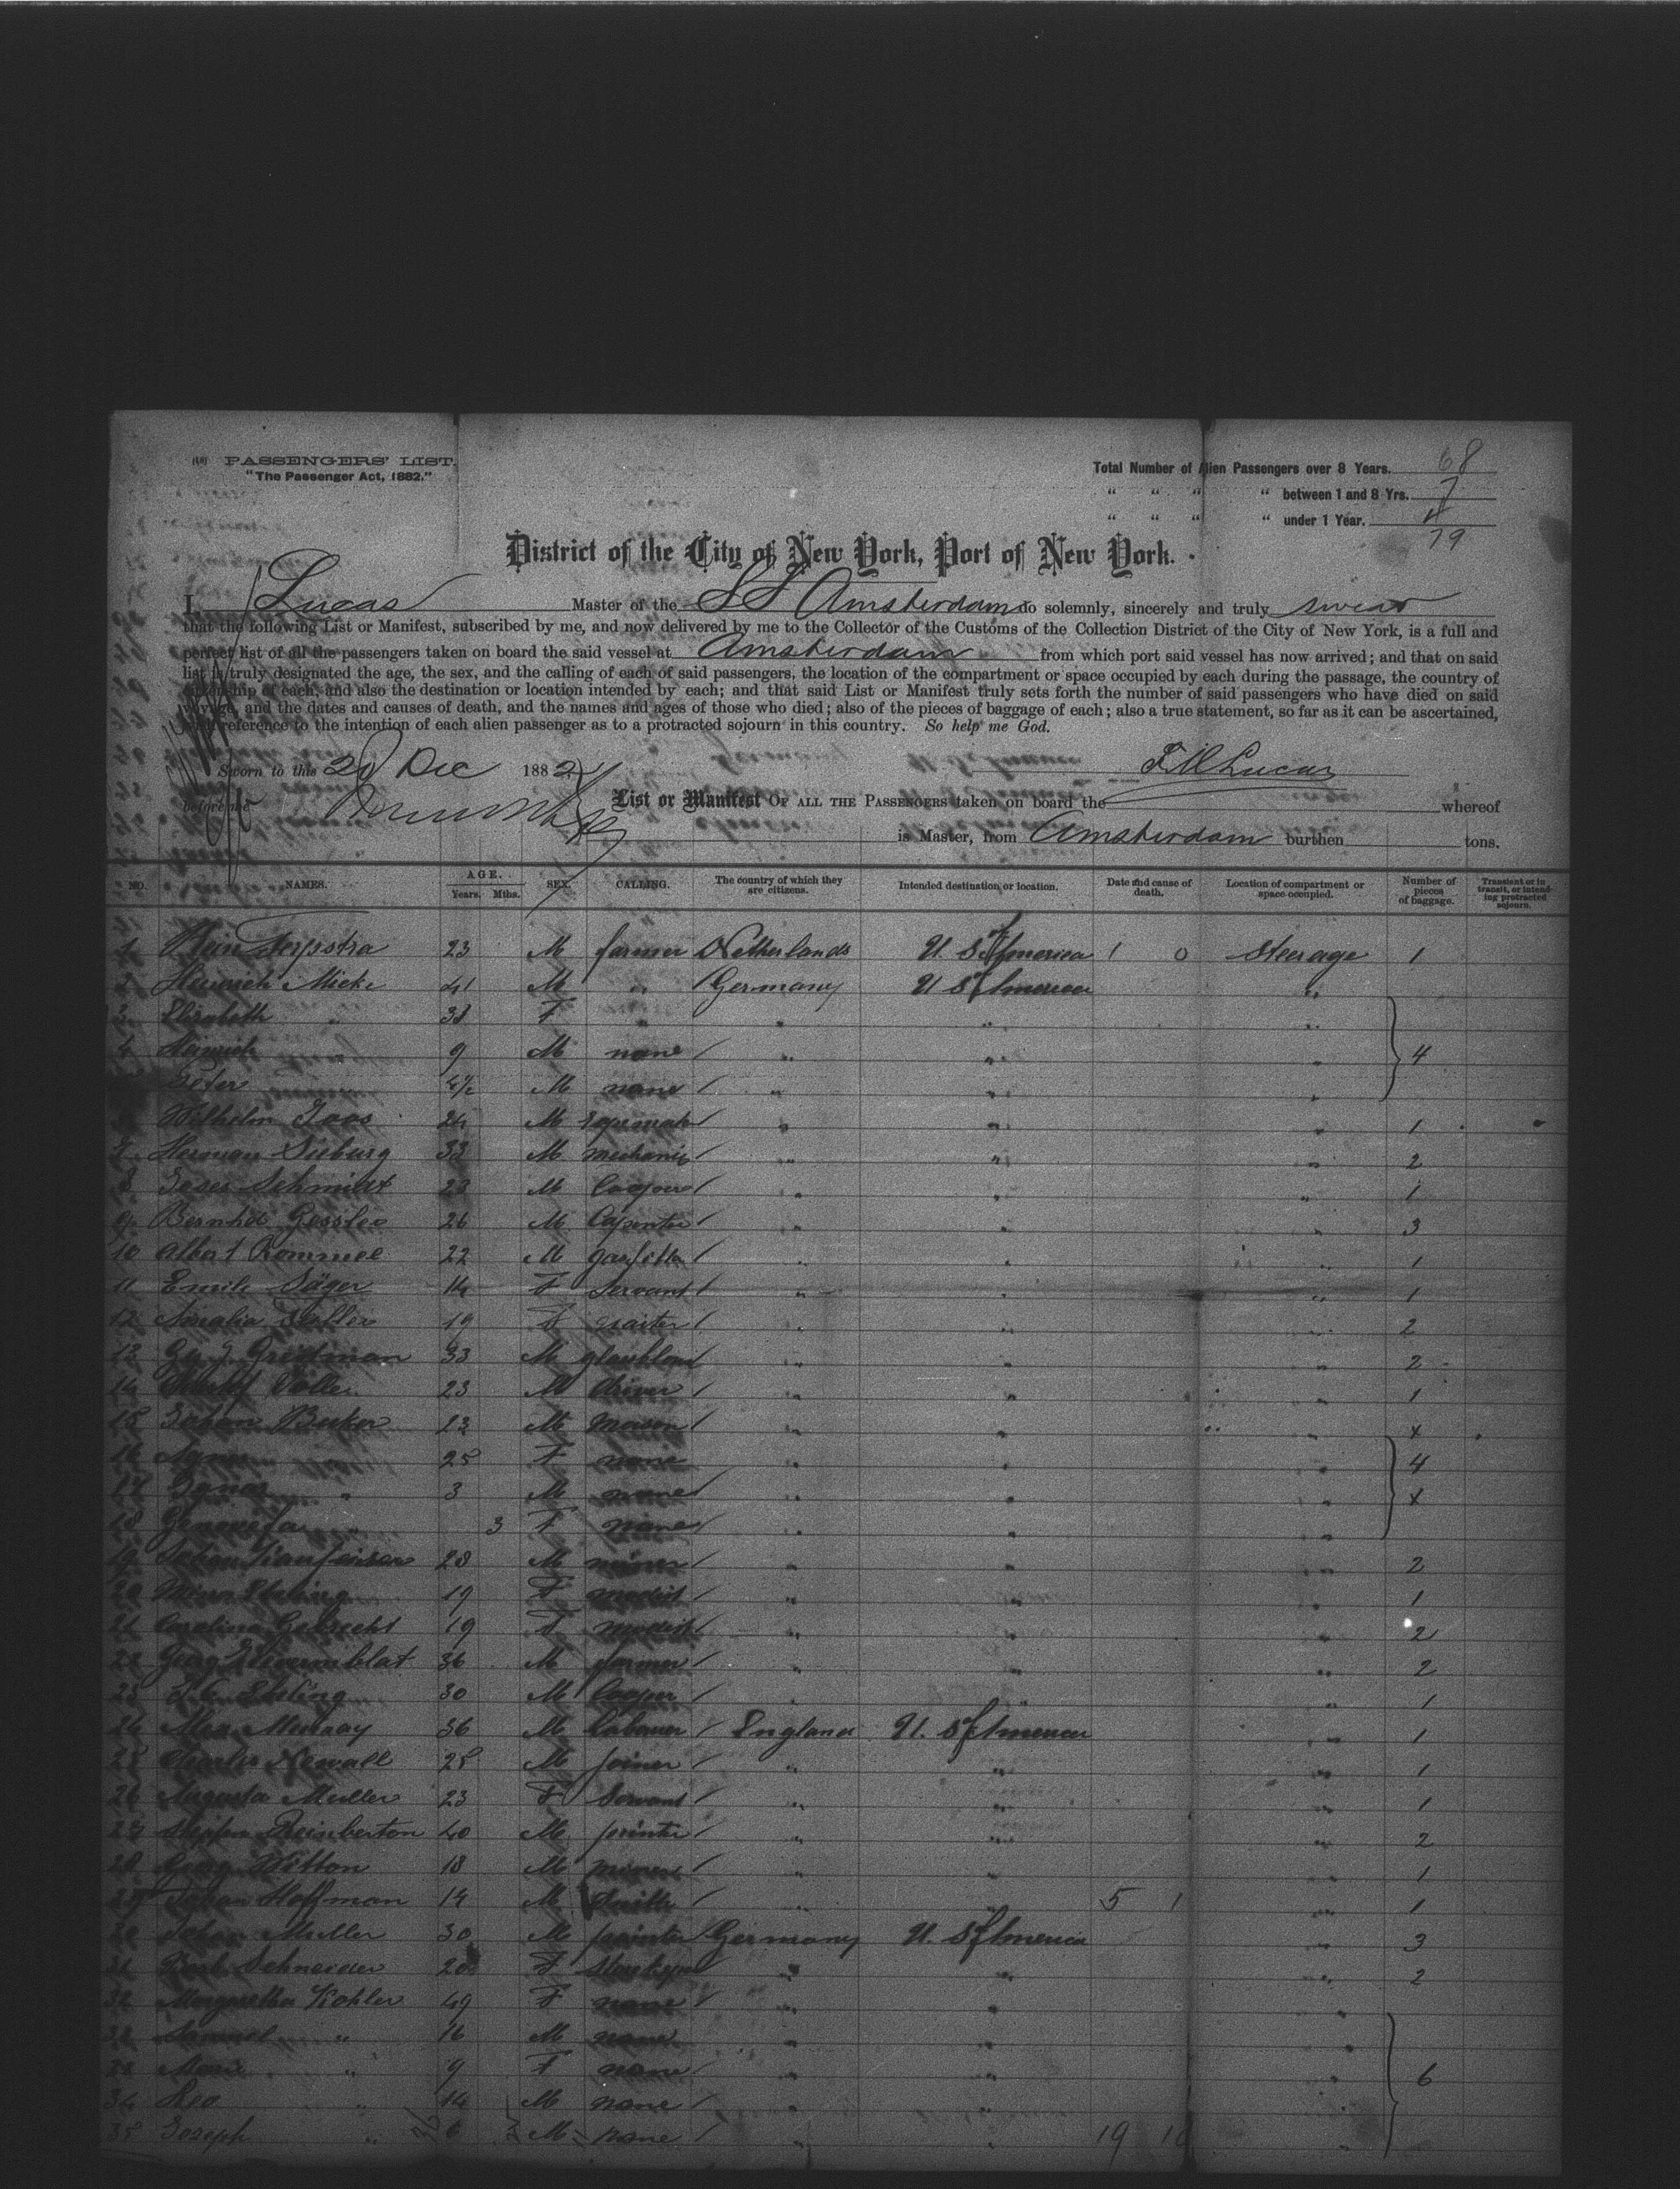 PASSENGERS' LIST.
"The Passenger Act, 1882."
Total Number of Alien Passengers over 8 Years. 68
" " " " between 1 and 8 Yrs. 7
" " " " under 1 Year. 4
79
District of the City of New York, Port of New York.
I, Lucas Master of the SS Amsterdam do solemnly, sincerely and truly swear
that the following List or Manifest, subscribed by me, and now delivered by me to the Collector of the Customs of the Collection District of the City of New York, is a full and
perfect list of all the passengers taken on board the said vessel at Amsterdam from which port said vessel has now arrived; and that on said
list is truly designated the age, the sex, and the calling of each of said passengers, the location of the compartment or space occupied by each during the passage, the country of
citizenship of each, and also the destination or location intended by each; and that said List or Manifest truly sets forth the number of said passengers who have died on said
voyage, and the dates and causes of death, and the names and ages of those who died; also of the pieces of baggage of each; also a true statement, so far as it can be ascertained,
with reference to the intention of each alien passenger as to a protracted sojourn in this country. So help me God.
Sworn to this 20 Dec 1882 Lucas
before me
List or Manifest OF ALL THE PASSENGERS taken on board the whereof
is Master, from Amsterdam burthen tons.
NO. NAMES. AGE. Years. Mths. SEX. CALLING. The country of which they are citizens. Intended destination or location. Date and cause of death. Location of compartment or space occupied. Number of pieces of baggage. Transient or in transit, or intending protracted sojourn.
1 Hein Terpstra 23 M farmer Netherlands U. S. of America 1 0 Steerage 1
2 Heinrich Micke 41 M " Germany U S of America "
3 Elisabeth " 38 F " " " "
4 Heinrich " 9 M none " " " 4
Peter 4½ M none " " "
Wilhelm 24 M " " " 1
7 Herman Sieburg 33 M mechanic " " " 2
8 Schmidt 23 M Cooper " " " 1
9 Bernhd Gessler 26 M Capenter " " " 3
10 Albert Rommel 22 M gasfitter " " " 1
11 Emile Säger 14 F Servant " " " 1
12 Amalia 19 F " " " 2
13 33 M " " " 2
14 23 M driver " " " 1
15 Johan Becker 23 M Mason " " " x
16 Agnes 25 F none " " " 4
17 Ignas " 3 M none " " " x
18 Genovefa " 3 F none " " "
19 Johan 28 M miner " " " 2
20 Mina 19 F modist " " " 1
21 Carolina Gebrecht 19 F modist " " " 2
22 Georg 36 M farmer " " " 2
30 M Cooper " " " 1
Murray 36 M Labourer England U. S. of America 1
Charles Newall 28 M joiner " " 1
26 Augusta Muller 23 F Servant " " 1
27 40 M printer " " " 2
28 Georg Witton 18 M miner " " " 1
29 Johan Hoffman 14 M Smith " " 5 1 " 1
30 Johan Muller 30 M printer Germany U. S. of America " 3
31 Schneider 20 F " " " 2
32 Margaretha Kohler 49 F none " " "
Samuel " 16 M none " " "
Marie " 9 F none " " " 6
34 Leo " 14 M none " " "
35 Joseph " 6 M none " " 19 10 "